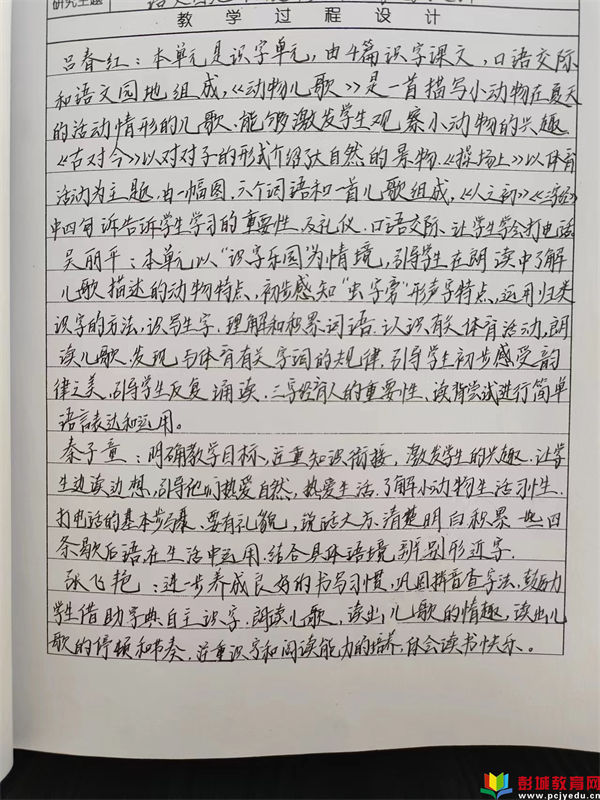 研究主题
教学过程设计
吕春红：本单元是识字单元，由4篇识字课文，口语交际
和语文园地组成，《动物儿歌》是一首描写小动物在夏天
的活动情形的儿歌.能够激发学生观察小动物的兴趣.
《古对今》以对对子的形式介绍了大自然的景物.《操场上》以体育
活动为主题.由一幅图.六个词语和一首儿歌组成，《人之初》《三字经》
中四句诉告诉学生学习的重要性.及礼仪.口语交际、让学生学会打电话
吴丽平：本单元以“识字乐园”为情境，引导学生在朗读中了解
儿歌描述的动物特点、初步感知“虫字旁”形声字特点、运用归类
识字的方法，识写生字.理解和积累词语.认识有关体育活动，朗
读儿歌.发现与体育有关字词的规律.引导学生初步感受韵
律之美.引导学生反复诵读.三字经育人的重要性、读背尝试进行简单
语言表达和运用。
秦子童：明确教学目标，注重知识衔接，激发学生的兴趣.让学
生边读边想，引导他们热爱自然，热爱生活.了解小动物生活习性.
打电话的基本步骤、要有礼貌，说话大方.清楚明白积累一些四
条歇后语在生活中运用.结合具体语境辨别形近字.
张飞艳：进一步养成良好的书写习惯.巩固拼音查字法.鼓励
学生借助字典自主识字.朗读儿歌，读出儿歌的情趣，读出儿
歌的停顿和节奏.注重识字和阅读能力的培养.体会读书快乐。
彭城教育网
www.pcjyedu.cn